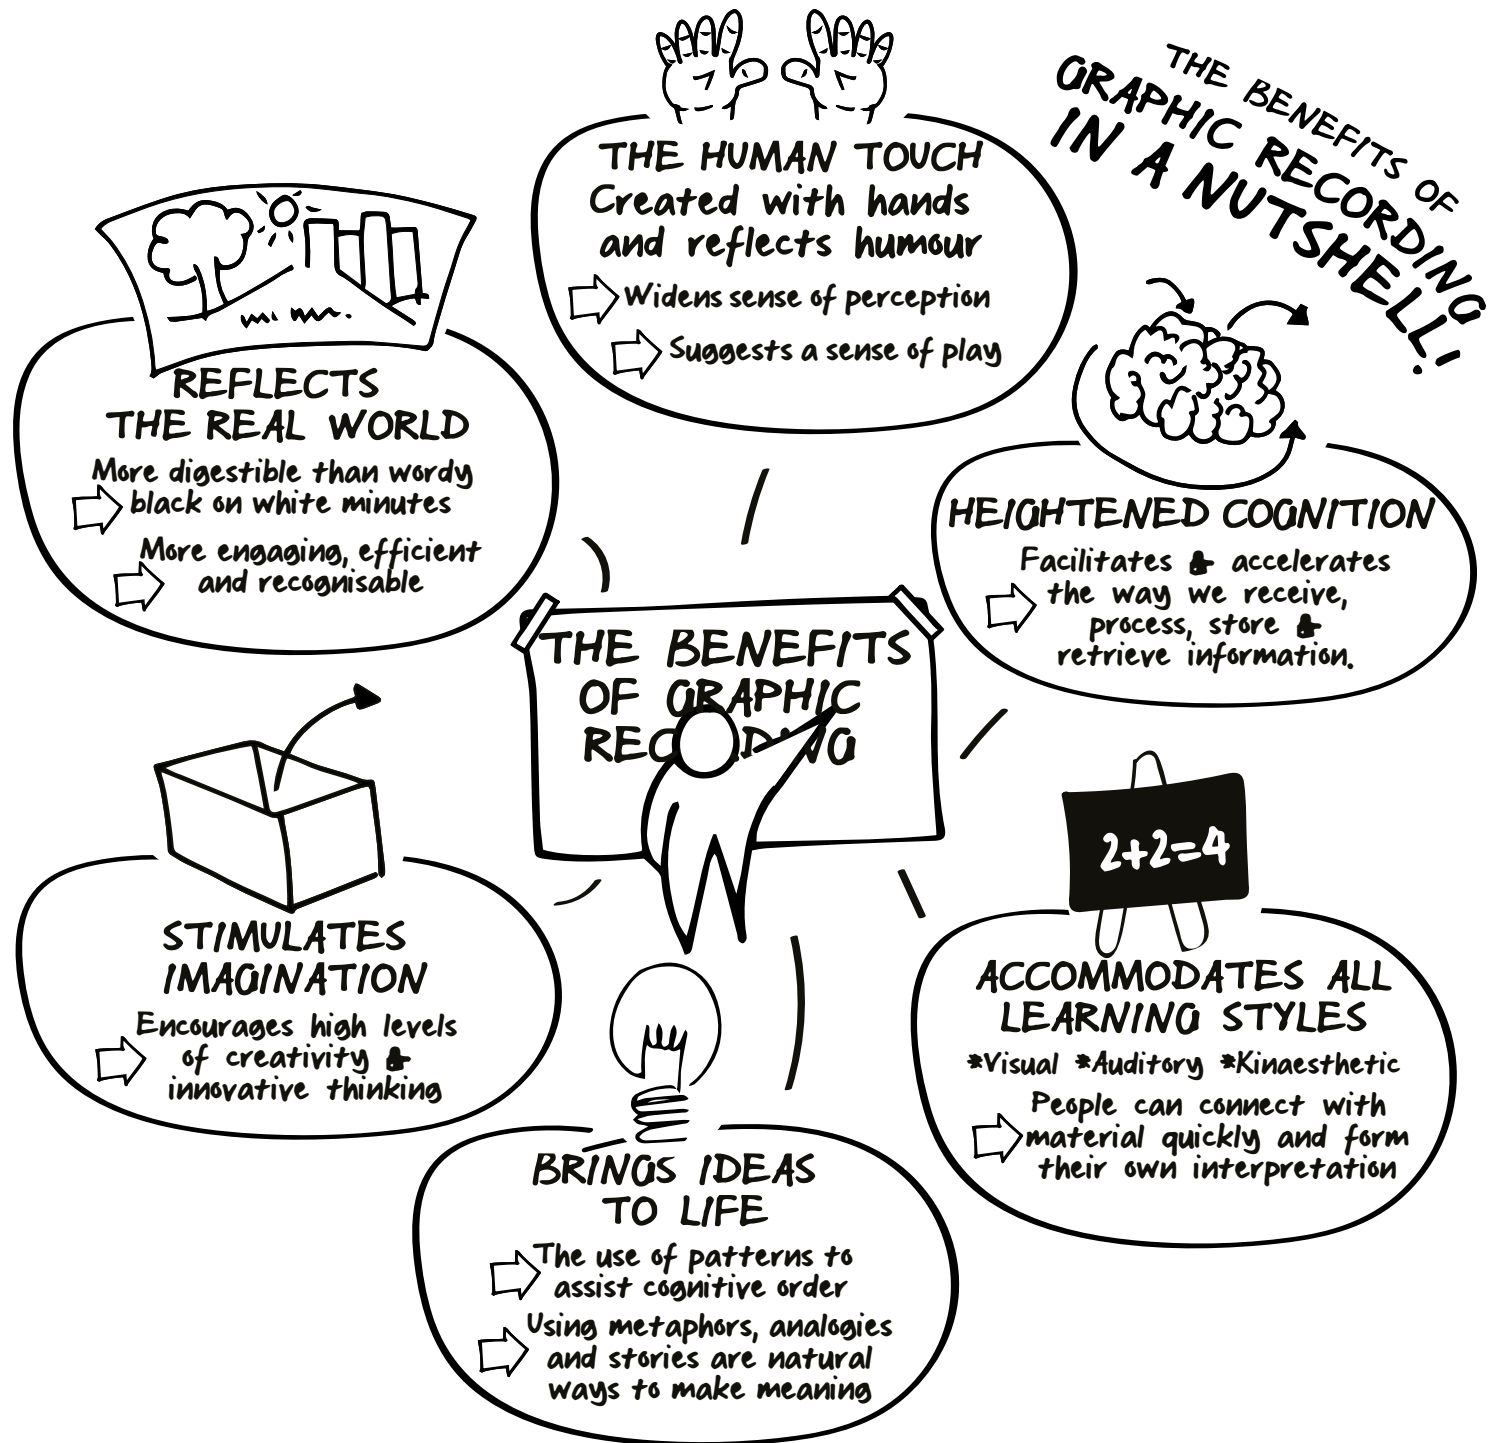 THE BENEFITS OF
GRAPHIC RECORDING
IN A NUTSHELL!
THE HUMAN TOUCH
Created with hands
and reflects humour
Widens sense of perception
Suggests a sense of play
REFLECTS
THE REAL WORLD
More digestible than wordy
black on white minutes
More engaging, efficient
and recognisable
HEIGHTENED COGNITION
Facilitates & accelerates
the way we receive,
process, store &
retrieve information.
THE BENEFITS
OF GRAPHIC
RECORDING
STIMULATES
IMAGINATION
Encourages high levels
of creativity &
innovative thinking
2+2=4
ACCOMMODATES ALL
LEARNING STYLES
*Visual *Auditory *Kinaesthetic
People can connect with
material quickly and form
their own interpretation
BRINGS IDEAS
TO LIFE
The use of patterns to
assist cognitive order
Using metaphors, analogies
and stories are natural
ways to make meaning